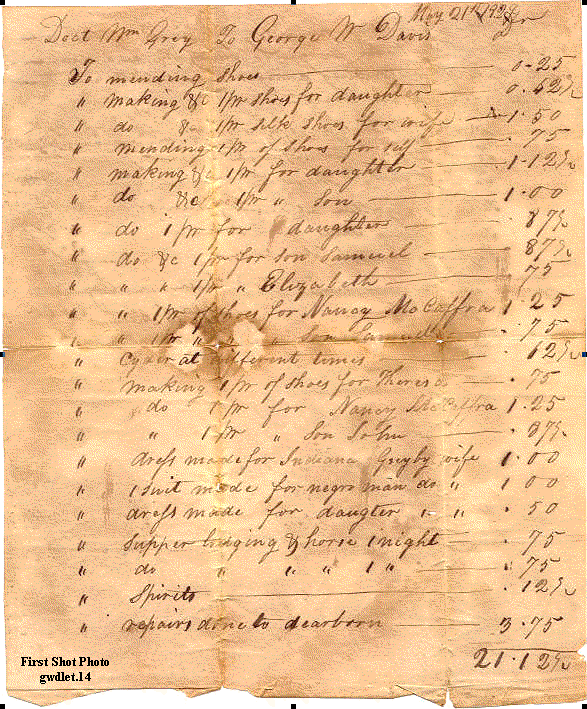 May 21st
Doct Wm Grey To George W Davis Dr
To mending shoes 0.25
" making &c 1 pr shoes for daughter 0.62½
" do &c 1 pr silk shoes for wife 1.50
" mending 1 pr of shoes for self .75
" making &c 1 pr for daughter 1.12½
" do &c 1 pr " son 1.00
" do 1 pr for daughter .87½
" do &c 1 pr for son Samuel .87½
" " " 1 pr " Elizabeth .75
" " 1 pr of shoes for Nancy McCaffra 1.25
" " 1 pr " " son Samuel .75
" Cyder at different times .12½
" making 1 pr of shoes for Theresa .75
" do 1 pr for Nancy McCaffra 1.25
" " 1 pr " Son John .87½
" dress made for Indiana by wife 1.00
" 1 suit made for negro man do " 1.00
" dress made for daugter " " .50
" supper lodging & horse 1 night .75
" do " " " 1 " .75
" Spirits .12½
" repairs done to dearborn 3.75
21.12½
First Shot Photo
gwdlet.14